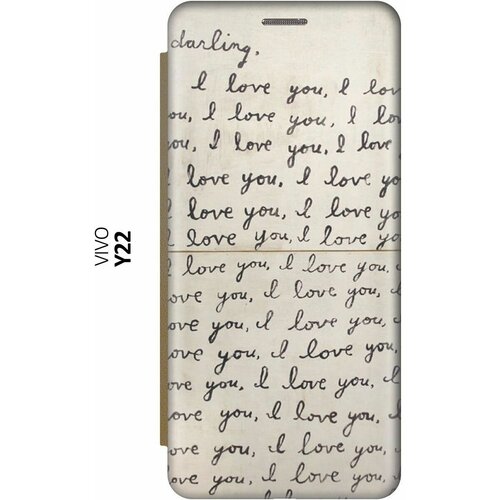 VIVO
Y22
darling,
I love you, I lov
ou, I love you, I love
you, I love you, I love
I love you, I love yo
I love you, I love yo
I love you, I love yo
I love you, I love you,
love you, I love you, I
ove you, I love you, I
ove you, I love you,
love you, I love you, I
ove you, I love you, I
ove you, I love you,
love you, I love you,